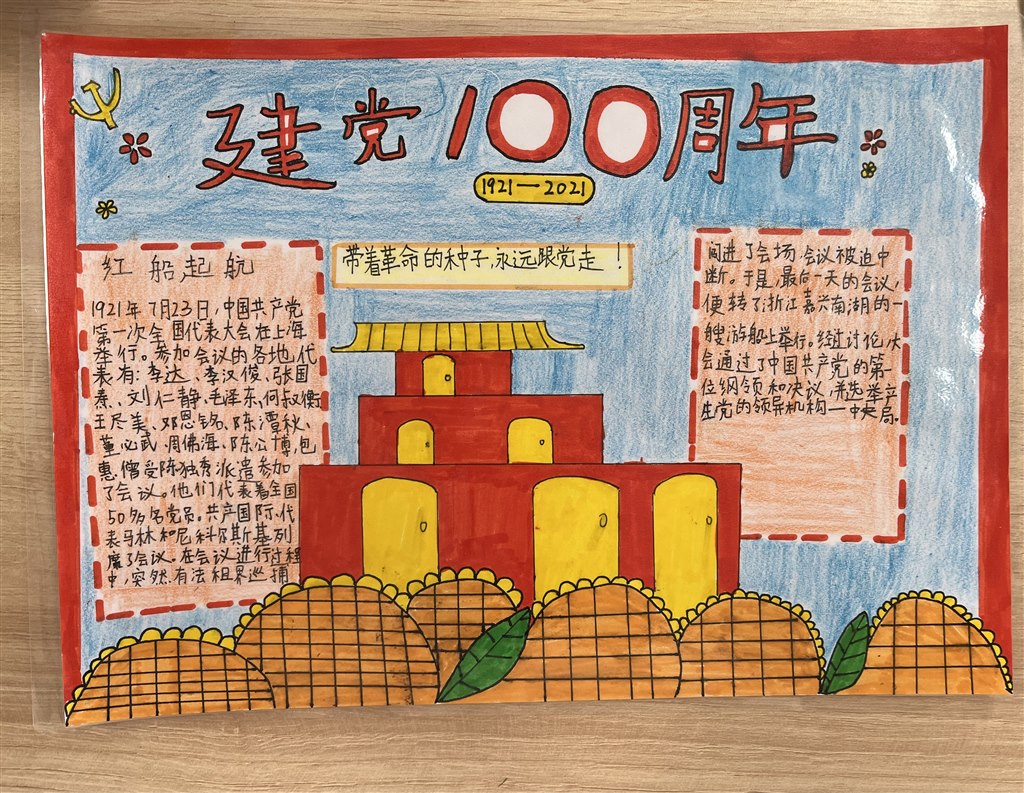 建党100周年
1921—2021
带着革命的种子,永远跟党走！
红船起航
1921年7月23日,中国共产党
第一次全国代表大会在上海
举行。参加会议的各地代
表有:李达、李汉俊、张国
焘、刘仁静、毛泽东、何叔衡
王尽美、邓恩铭、陈潭秋、
董必武、周佛海、陈公博,包
惠僧受陈独秀派遣参加
了会议。他们代表着全国
50多名党员。共产国际代
表马林和尼科尔斯基列
席了会议。在会议进行过程
中,突然有法租界巡捕
闯进了会场,会议被迫中
断。于是,最后一天的会议,
便转了浙江嘉兴南湖的一
艘游船上举行。经过讨论,大
会通过了中国共产党的第一
位纲领和决议,并选举产
生党的领导机构一中央局。